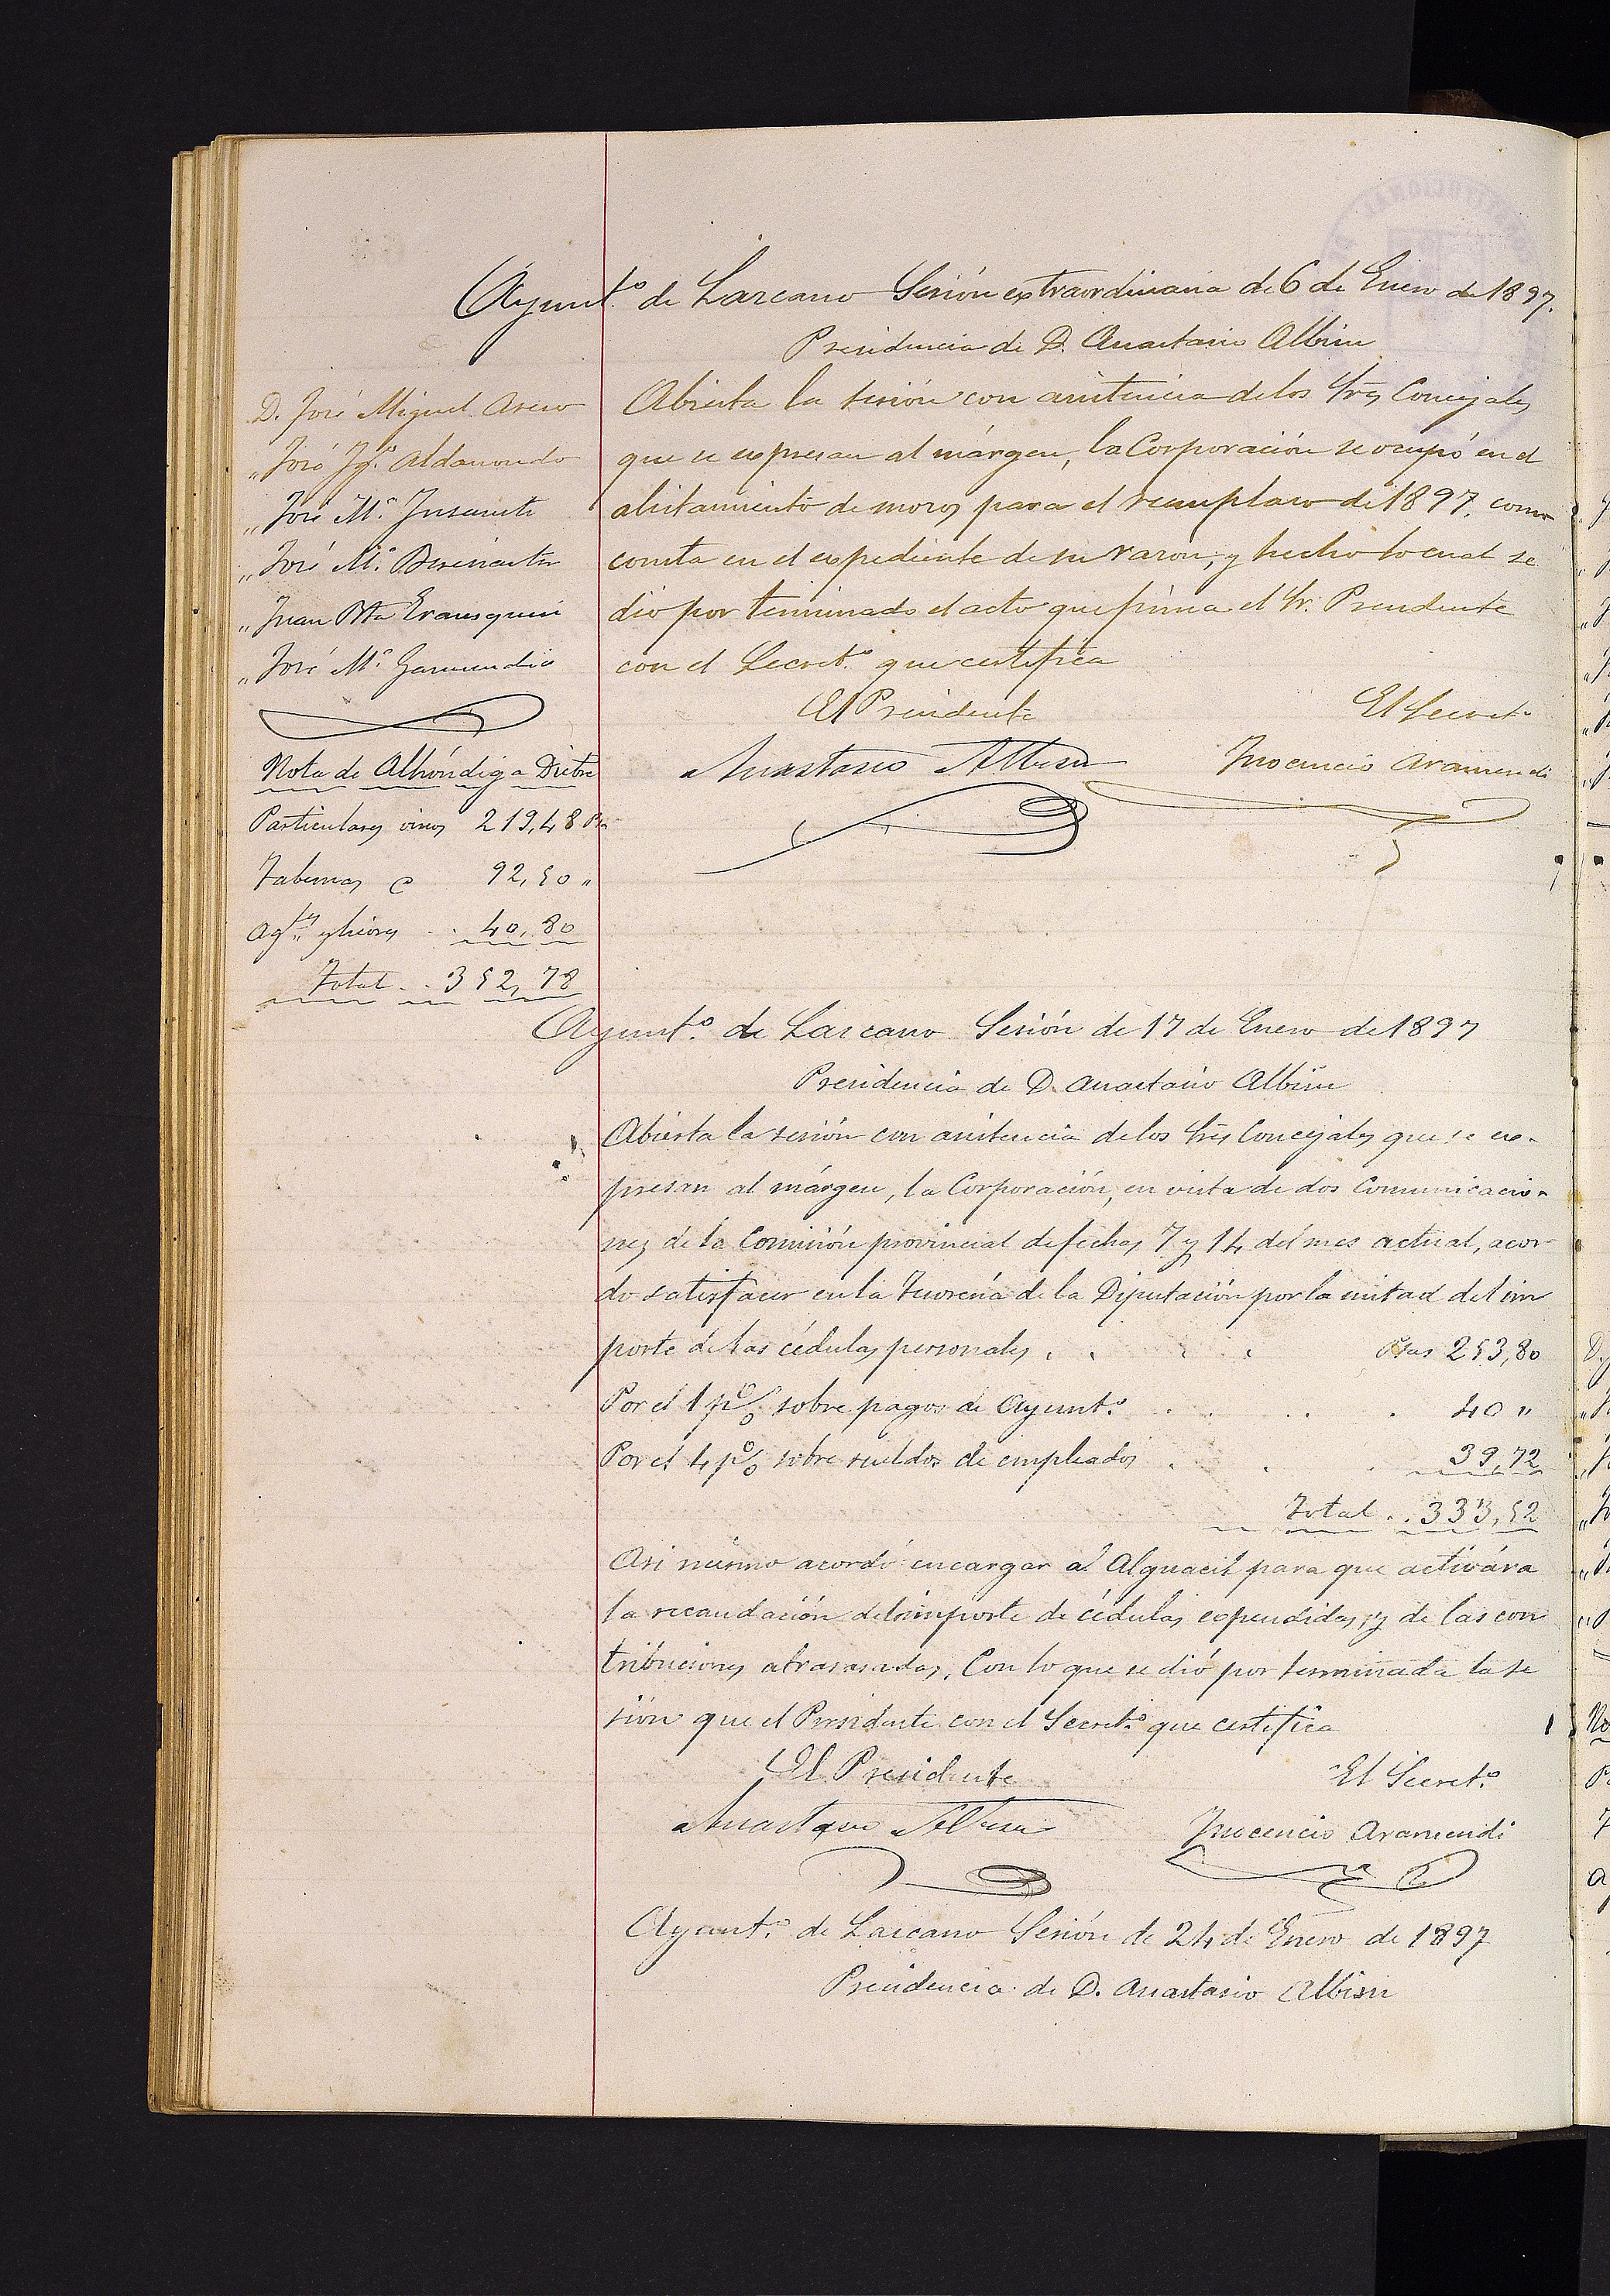 Ayunt.º de Lazcano Sesión extraordinaria de 6 de Enero de 1897.
Presidencia de D. Anastasio Albisu
D. José Miguel Aseso
„ José Ig.º Aldasoro
„ José M.ª Insausti
„ José M.ª
„ Juan Bta Erausquin
„ José M.ª Garmendia
Nota de Alhóndiga Dicbre
Particulares vinos 219,48 Pts
Tabernas 92,50 „
Ag.tes y licores . . 40,80
Total . . 352,78
Abierta la sesión con asistencia de los Sres Concejales
que se expresan al márgen, la Corporación se ocupó en el
alistamiento de mozos para el reemplazo de 1897, como
consta en el expediente de su razon; y hecho lo cual se
dió por terminado el acto que firma el Sr. Presidente
con el Secret.º que certifica
El Presidente El Secret.º
Anastasio Albisu Inocencio Aramendi
Ayunt.º de Lazcano Sesión de 17 de Enero de 1897
Presidencia de D. Anastasio Albisu
Abierta la sesión con asistencia de los Sres Concejales que se ex-
presan al márgen, la Corporación, en vista de dos Comunicacio-
nes de la Comisión provincial de fechas 7 y 14 del mes actual, acor-
do satisfacer en la Tesorería de la Diputación por la mitad del im
porte de las cédulas personales . . . . Ptas 253,80
Por el 1 p% sobre pagos de Ayunt.º . . . . . 40 „
Por el 4 p% sobre sueldos de empleados . . . 39,72
Total . . 333,52
Asi mismo acordó encargar al Alguacil para que activára
la recaudación del importe de cédulas expendidas, y de las con
tribuciones atrasasadas. Con lo que se dió por terminada la se
sión que el Presidente con el Secret.º que certifica
El Presidente El Secret.º
Anastasio Albisu Inocencio Aramendi
Ayunt.º de Lazcano Sesión de 24 de Enero de 1897
Presidencia de D. Anastasio Albisu